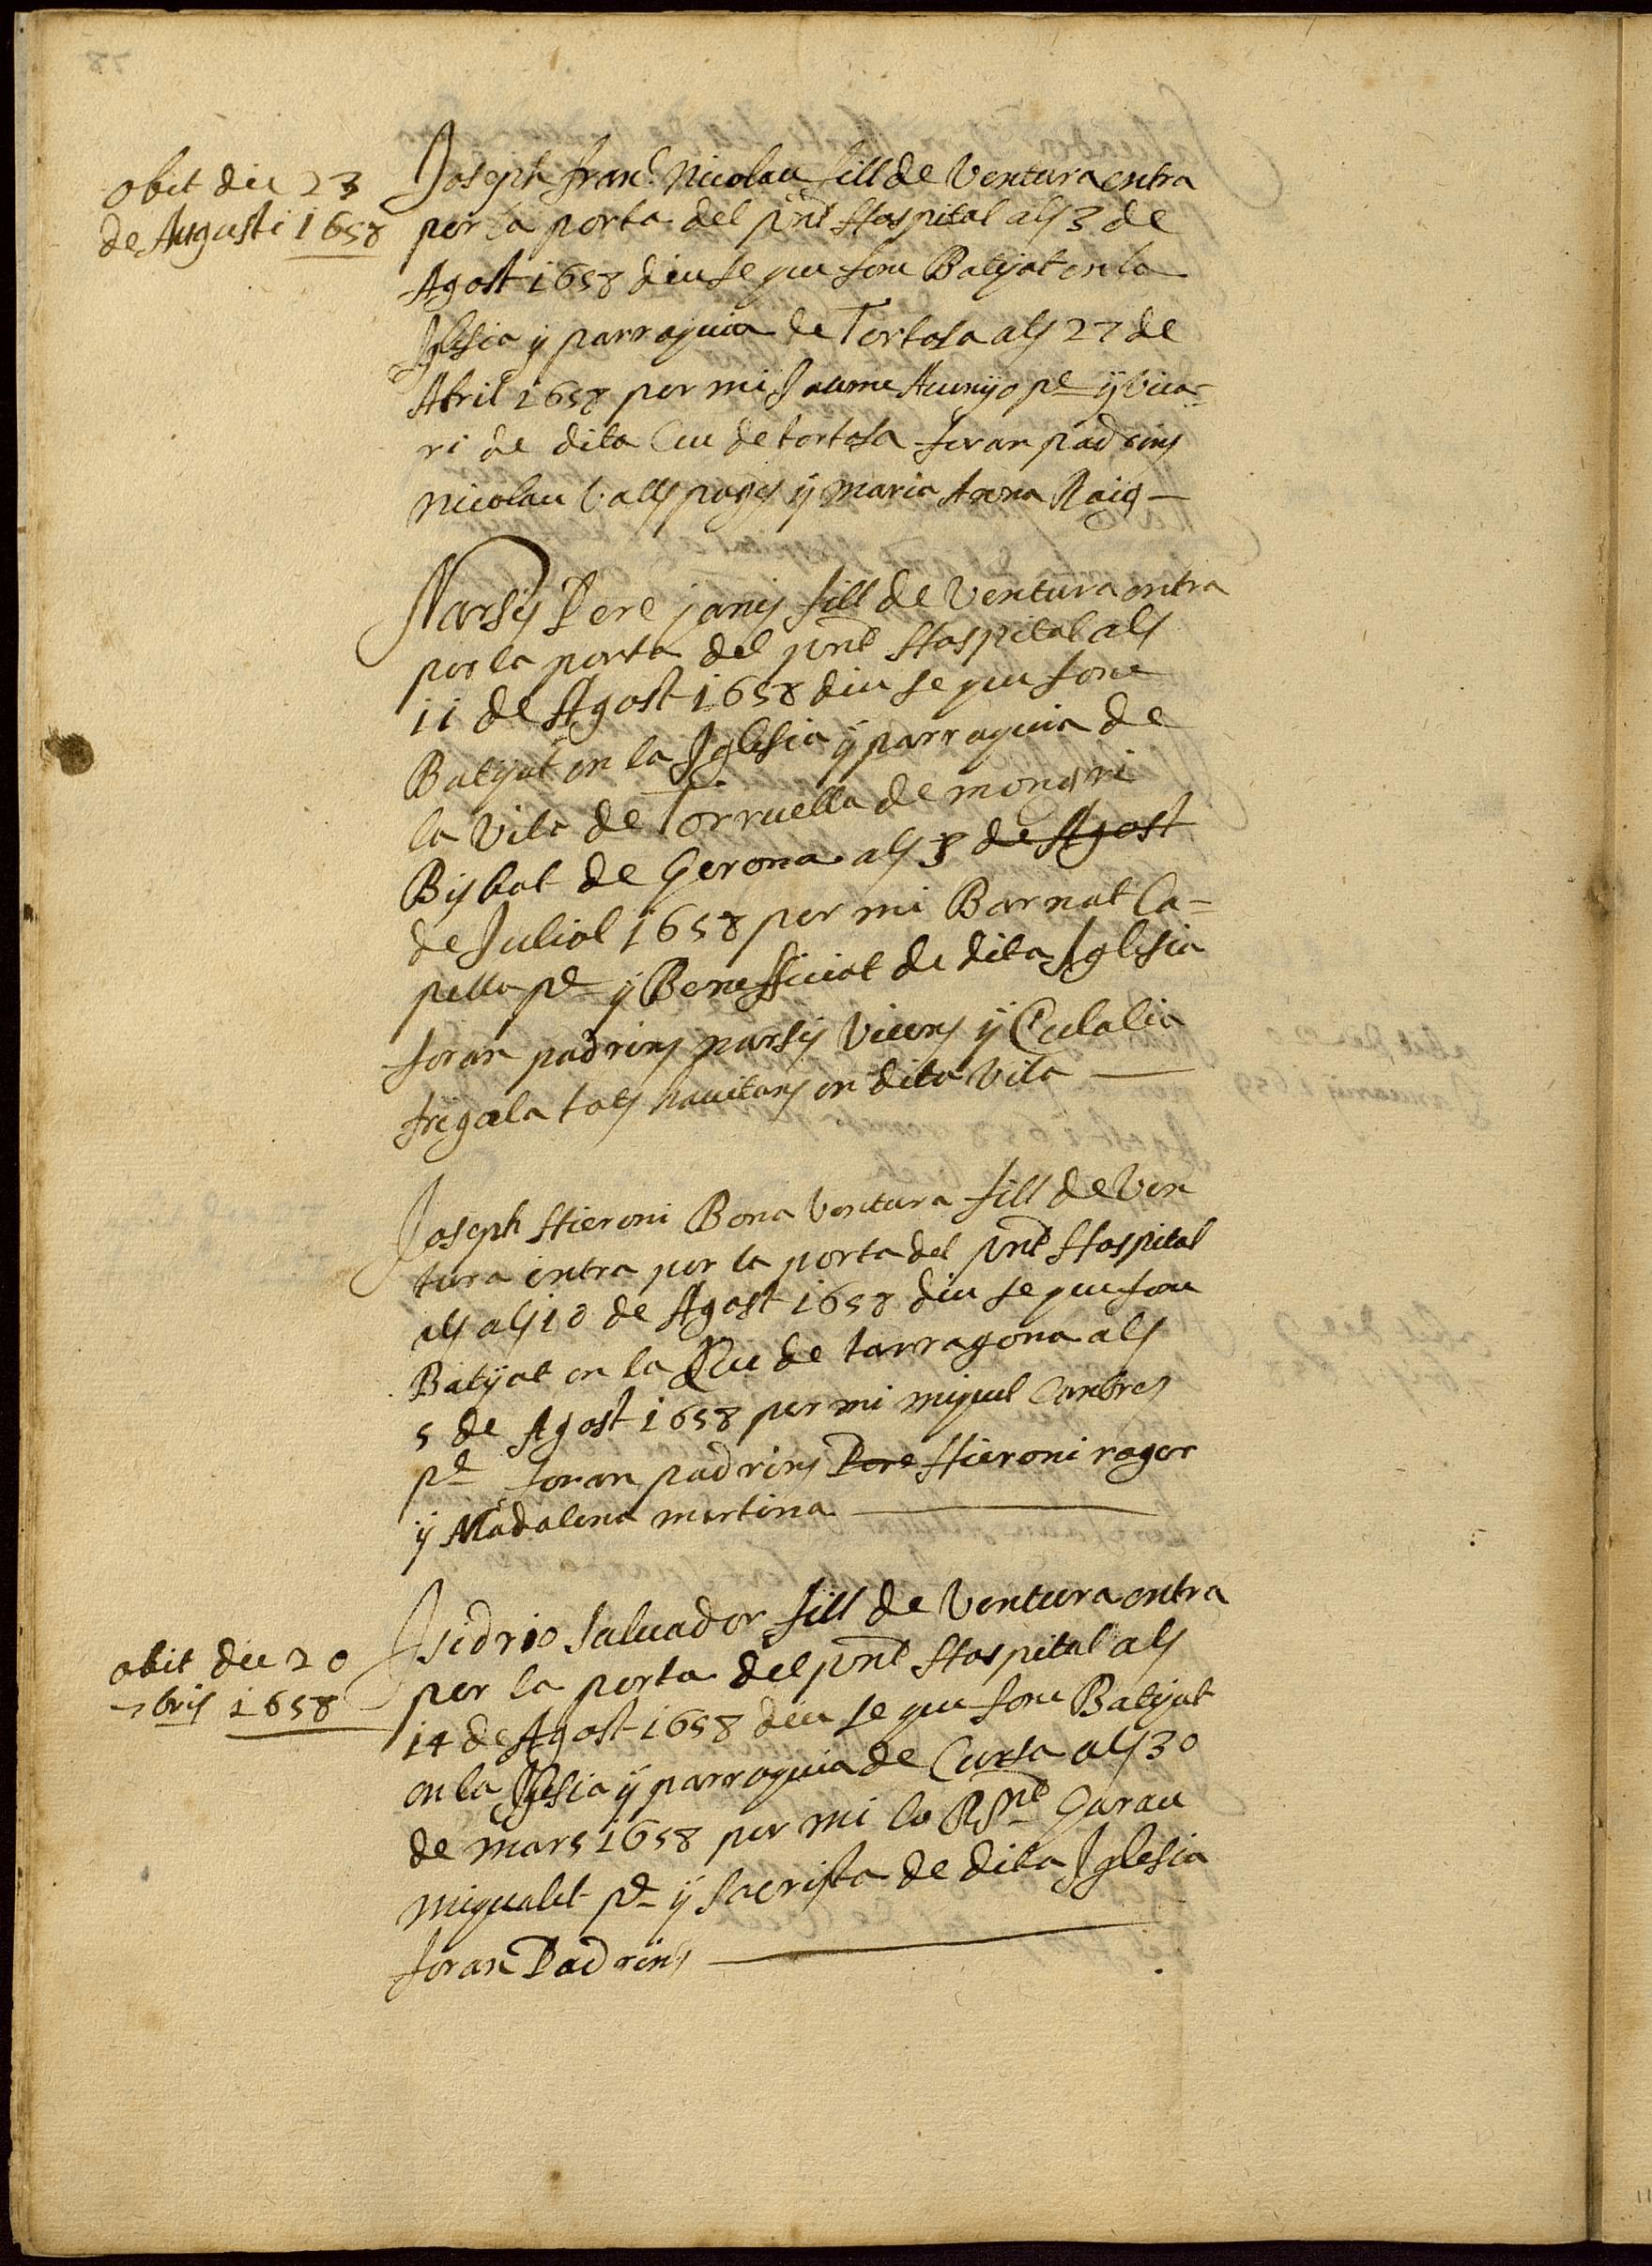 obit die 23
de Augusti 1658
Joseph Franc. Nicolau fill de Ventura entra
per la porta del pnt Hospital als 3 de
Agost 1658 diu se que fonc Batyat en la
Iglesia y parroquia de Tortosa als 27 de
Abril 1658 per mi Jaume pe y Vica=
ri de dita Ceu de tortosa foran padrins
Nicolau Valls pages y Maria Anna Raig
Narsis Pere janis fill de Ventura entra
per la porta del pnt Hospital als
11 de Agost 1658 diu se que fonc
Batyat en la Iglesia y parroquia de
la Vila de Torruella de mongri
Bisbat de Gerona als 3 de Agost
de Juliol 1658 per mi Barnat Ca=
pella pe y Benefficiat de dita Iglesia
foran padrins narsis Vicens y Eulalia
frigola tots havitans en dita Vila
Joseph Hieroni Bona Ventura fill de Ven
tura entra per la porta del pnt Hospital
als als 10 de Agost 1658 diu se que fonc
Batyat en la Ceu de tarragona als
5 de Agost 1658 per mi miquel Cantres
pe foran padrins Pere Hieroni roger
y Madalena martina
obit die 20
7bris 1658
Isidrio Saluador fill de Ventura entra
per la porta del pnt Hospital als
14 de Agost 1658 diu se que fonc Batyat
en la Iglesia y parroquia de Cursa als 30
de mars 1658 per mi lo Rnt Garau
miqualet pe y Sacrista de dita Iglesia
foran Padrins